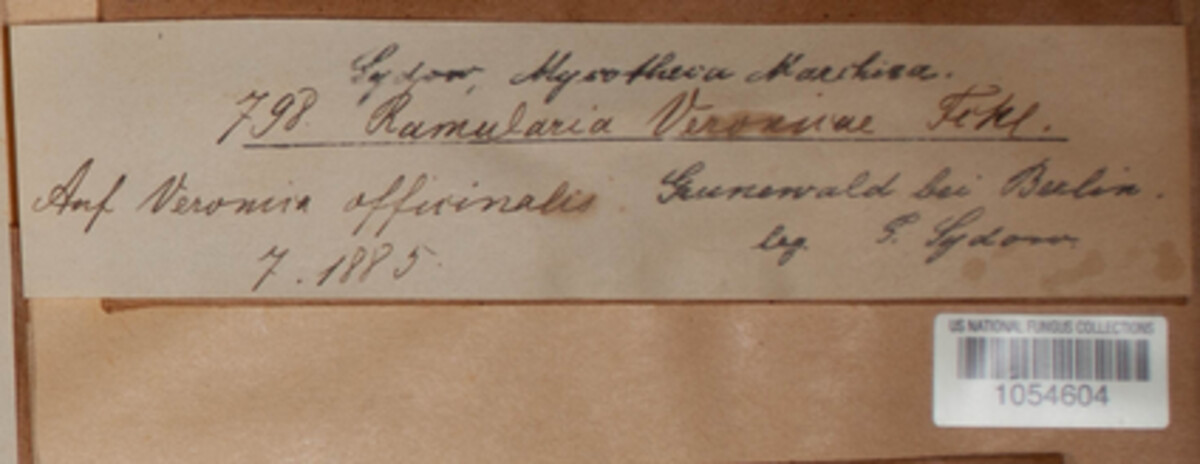 Sydow, Mycotheca Marchica.
798. Ramularia Veronicae Fckl.
Auf Veronica officinalis. Grunewald bei Berlin.
7. 1885. leg. P. Sydow.
US NATIONAL FUNGUS COLLECTIONS
1054604